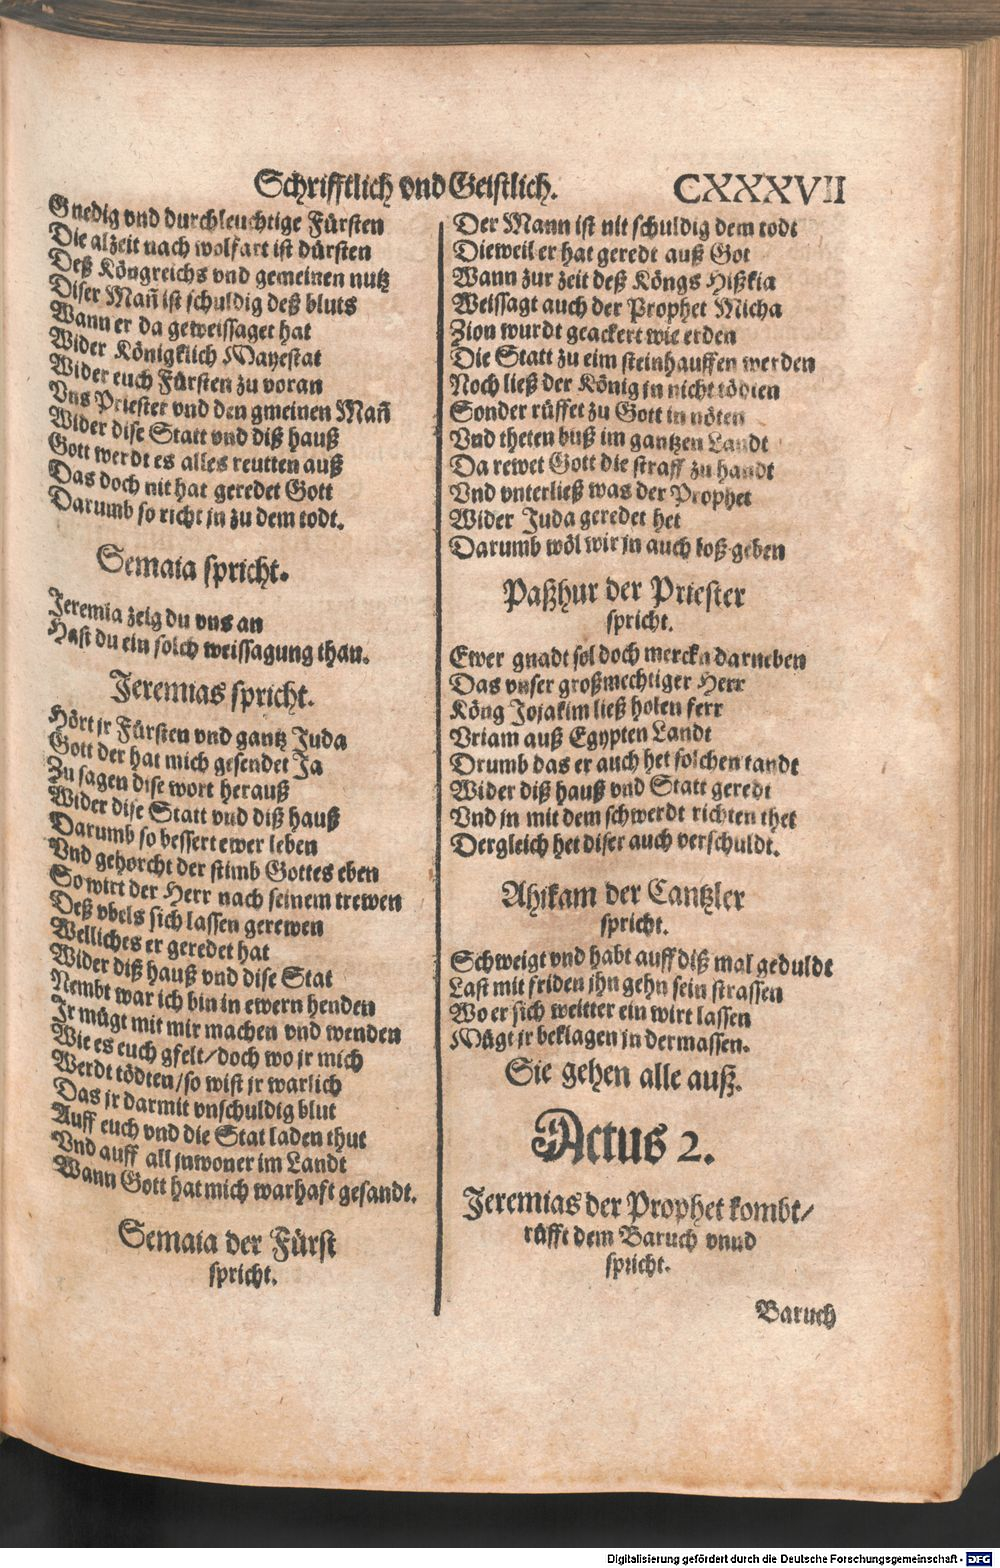 Schrifftlich vnd Geistlich. CXXXVII
Gnedig vnd durchleuchtige Fürsten
Die alzeit nach wolfart ist dürsten
Deß Köngreichs vnd gemeinen nutz
Diser Mañ ist schuldig deß bluts
Wann er da geweissaget hat
Wider Königklich Mayestat
Wider euch Fürsten zu voran
Vns Priester vnd den gmeinen Mañ
Wider dise Statt vnd diß hauß
Gott werdt es alles reutten auß
Das doch nit hat geredet Gott
Darumb so richt jn zu dem todt.
Semaia spricht.
Jeremia zeig du vns an
Hast du ein solch weissagung than.
Jeremias spricht.
Hört jr Fürsten vnd gantz Juda
Gott der hat mich gesendet Ja
Zu sagen dise wort herauß
Wider dise Statt vnd diß hauß
Darumb so bessert ewer leben
Vnd gehorcht der stimb Gottes eben
So wirt der Herr nach seinem trewen
Deß vbels sich lassen gerewen
Welliches er geredet hat
Wider diß hauß vnd dise Stat
Nembt war ich bin in ewern henden
Jr mügt mit mir machen vnd wenden
Wie es euch gfelt/doch wo jr mich
Werdt tödten/so wist jr warlich
Das jr darmit vnschuldig blut
Auff euch vnd die Stat laden thut
Vnd auff all jnwoner im Landt
Wann Gott hat mich warhaft gesandt.
Semaia der Fürst
spricht.
Der Mann ist nit schuldig dem todt
Dieweil er hat geredt auß Got
Wann zur zeit deß Köngs Hißkia
Weissagt auch der Prophet Micha
Zion wurdt geackert wie erden
Die Statt zu eim steinhauffen werden
Noch ließ der König jn nicht tödten
Sonder rüffet zu Gott in nöten
Vnd theten buß im gantzen Landt
Da rewet Gott die straff zu handt
Vnd vnterließ was der Prophet
Wider Juda geredet het
Darumb wöl wir jn auch loß geben
Paßhur der Priester
spricht.
Ewer gnadt sol doch mercken darneben
Das vnser großmechtiger Herr
Köng Jojakim ließ holen ferr
Vriam auß Egypten Landt
Drumb das er auch het solchen tandt
Wider diß hauß vnd Statt geredt
Vnd jn mit dem schwerdt richten thet
Dergleich het diser auch verschuldt.
Ahikam der Cantzler
spricht.
Schweigt vnd habt auff diß mal geduldt
Last mit friden jhn gehn sein strassen
Wo er sich weitter ein wirt lassen
Mügt jr beklagen jn dermassen.
Sie gehen alle auß.
Actus 2.
Jeremias der Prophet kombt/
rüfft dem Baruch vnnd
spricht.
Baruch
Digitalisierung gefördert durch die Deutsche Forschungsgemeinschaft - DFG